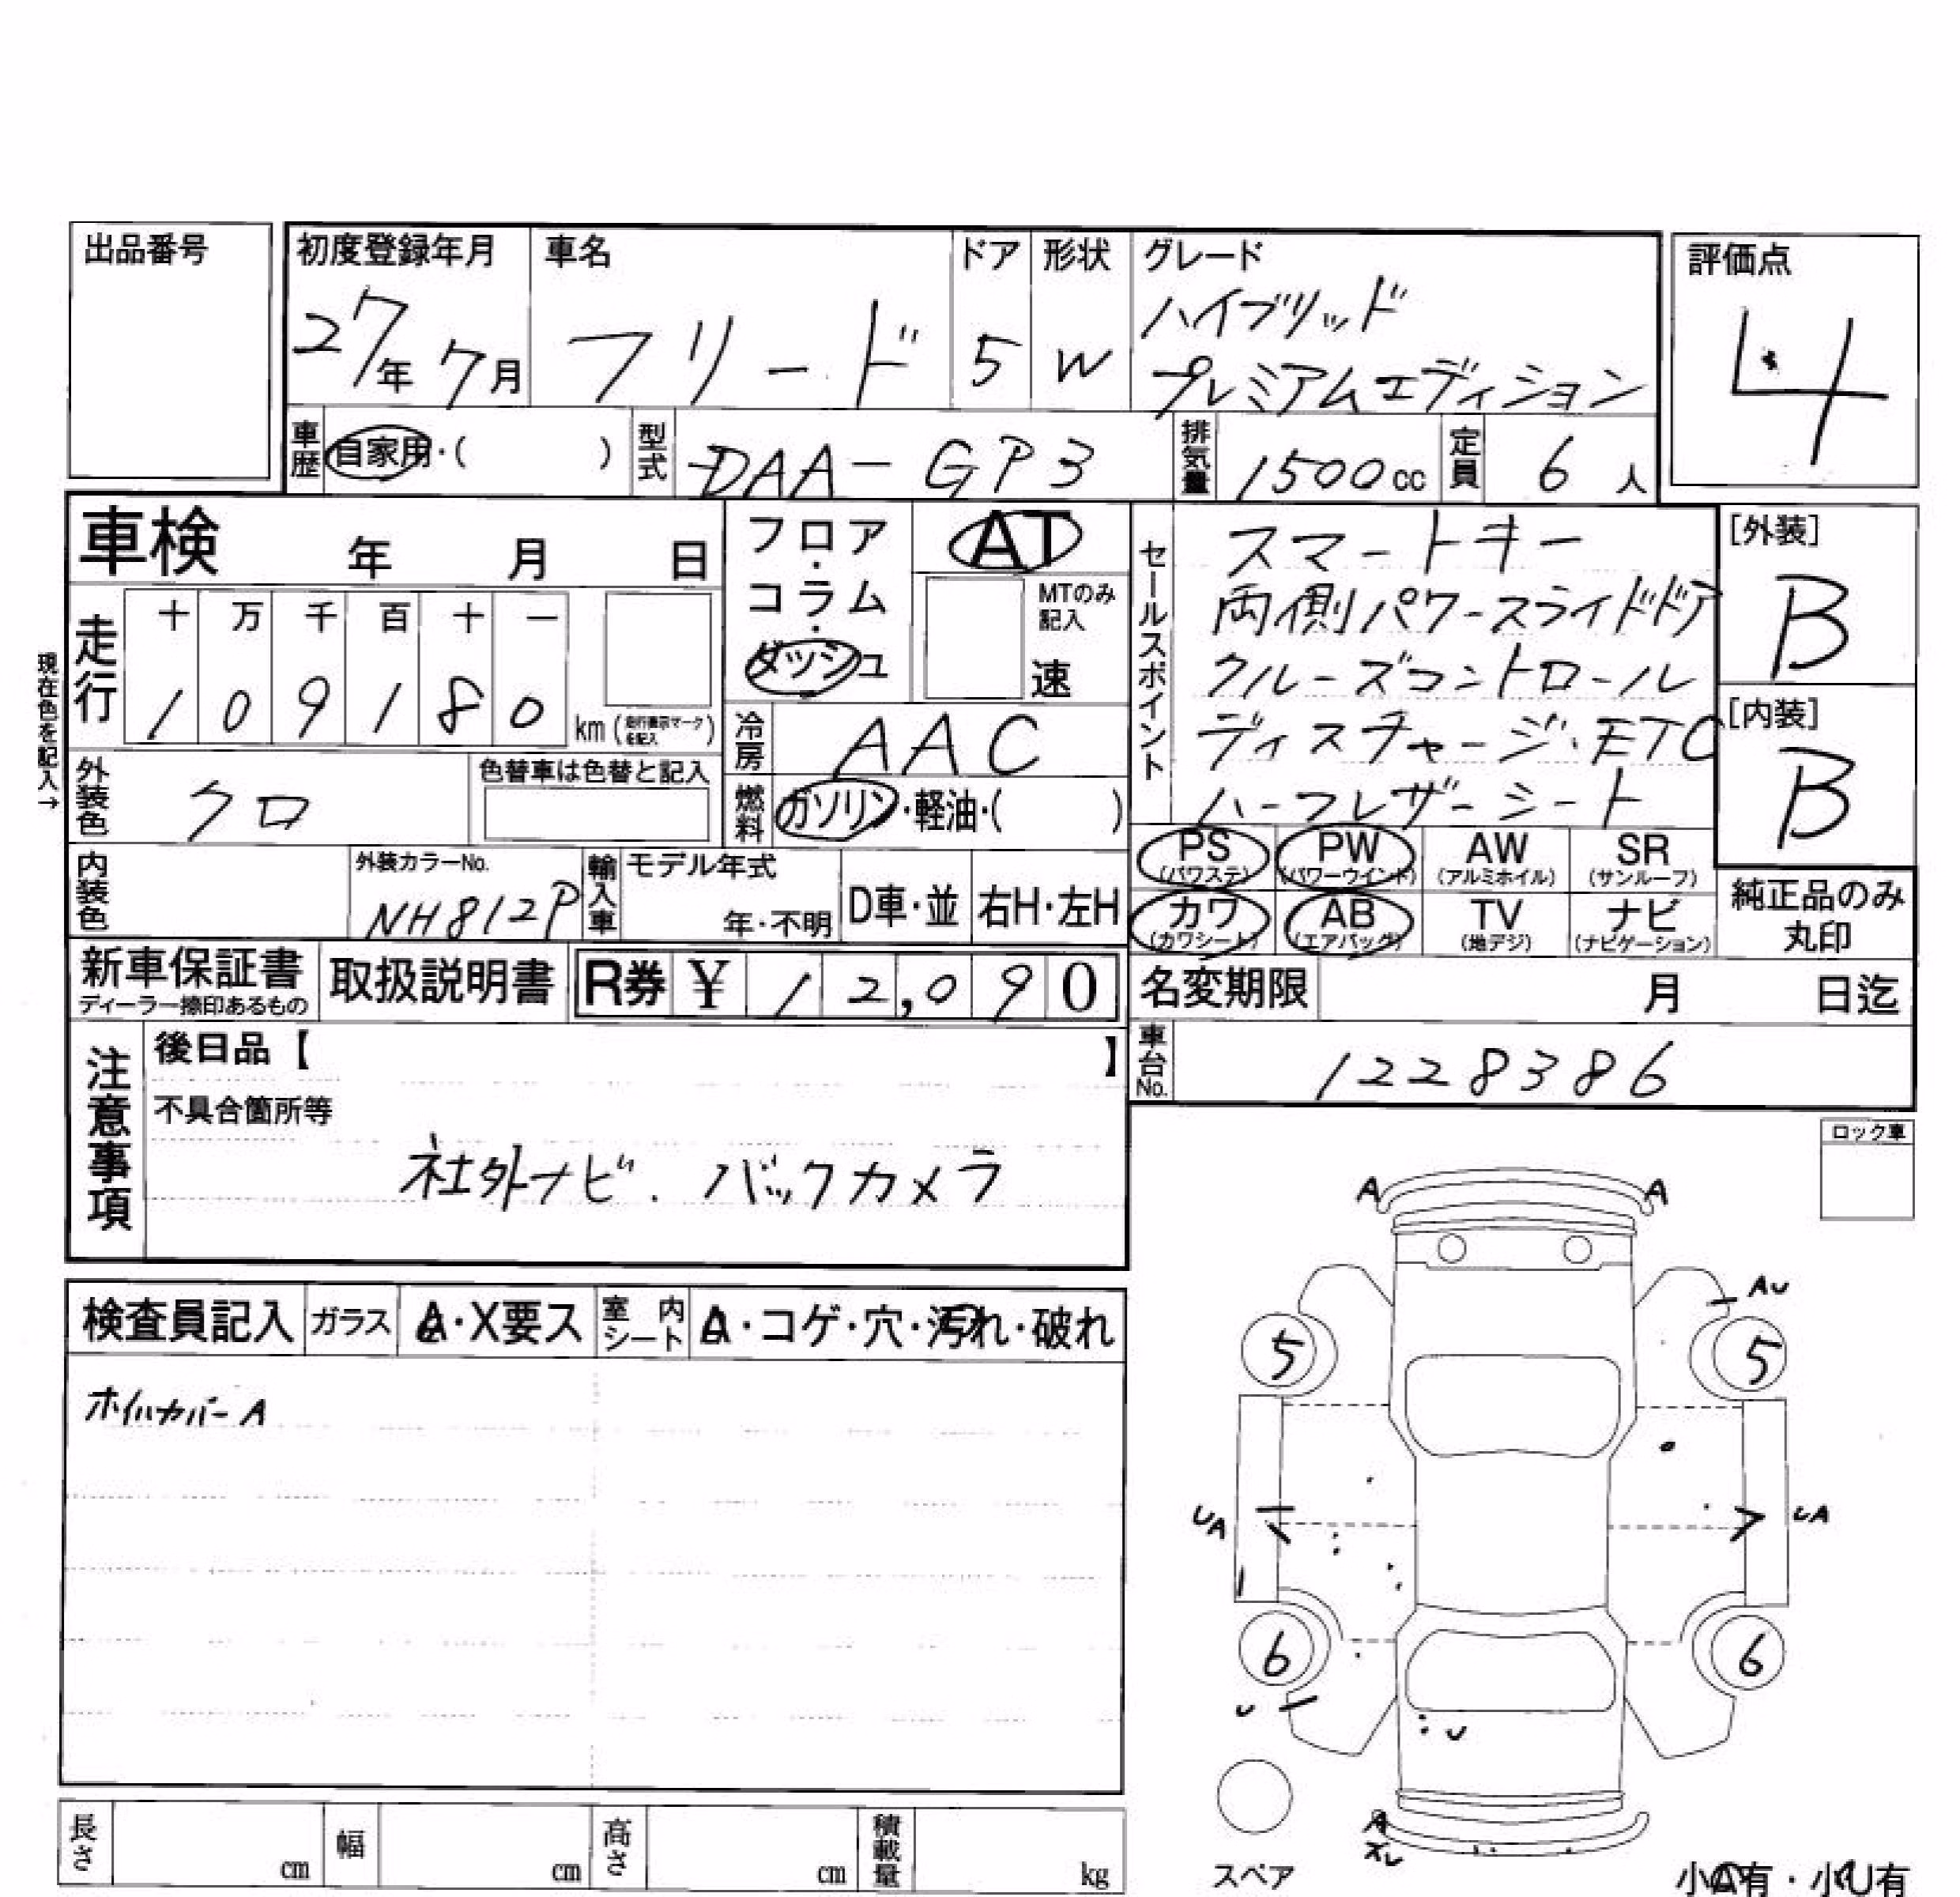 出品番号
初度登録年月 車名 ドア 形状 グレード
評価点
27年 7月 フリード 5 W ハイブリッド
プレミアムエディション
4
車歴 自家用・( ) 型式 DAA-GP3 排気量 1500cc 定員 6人
車検 年 月 日
フロア・コラム・ダッシュ
AT
MTのみ記入
速
セールスポイント
スマートキー
両側パワースライドドア
クルーズコントロール
ディスチャージ、ETC
ハーフレザーシート
[外装]
B
[内装]
B
現在色を記入→
走行 十 万 千 百 十 一
1 0 9 1 8 0 km (走行表示マークを記入)
冷房 AAC
外装色 クロ 色替車は色替と記入
燃料 ガソリン・軽油・( )
PS (パワステ) PW (パワーウインド) AW (アルミホイル) SR (サンルーフ)
カワ (カワシート) AB (エアバッグ) TV (地デジ) ナビ (ナビゲーション)
純正品のみ
丸印
内装色 外装カラーNo. NH812P 輸入車 モデル年式 年・不明 D車・並 右H・左H
新車保証書 取扱説明書 R券 ¥ 12,090 名変期限 月 日迄
ディーラー捺印あるもの
車台No. 1228386
注意事項 後日品【 】
不具合箇所等
社外ナビ. バックカメラ
ロック車
検査員記入 ガラス A・X要ス 室内シート A・コゲ・穴・汚れ・破れ
ホイルカバーA
A A
AU
5 5
UA UA
6 6
U
U
A
スレ
スペア
小A有・小U有
長さ cm 幅 cm 高さ cm 積載量 kg